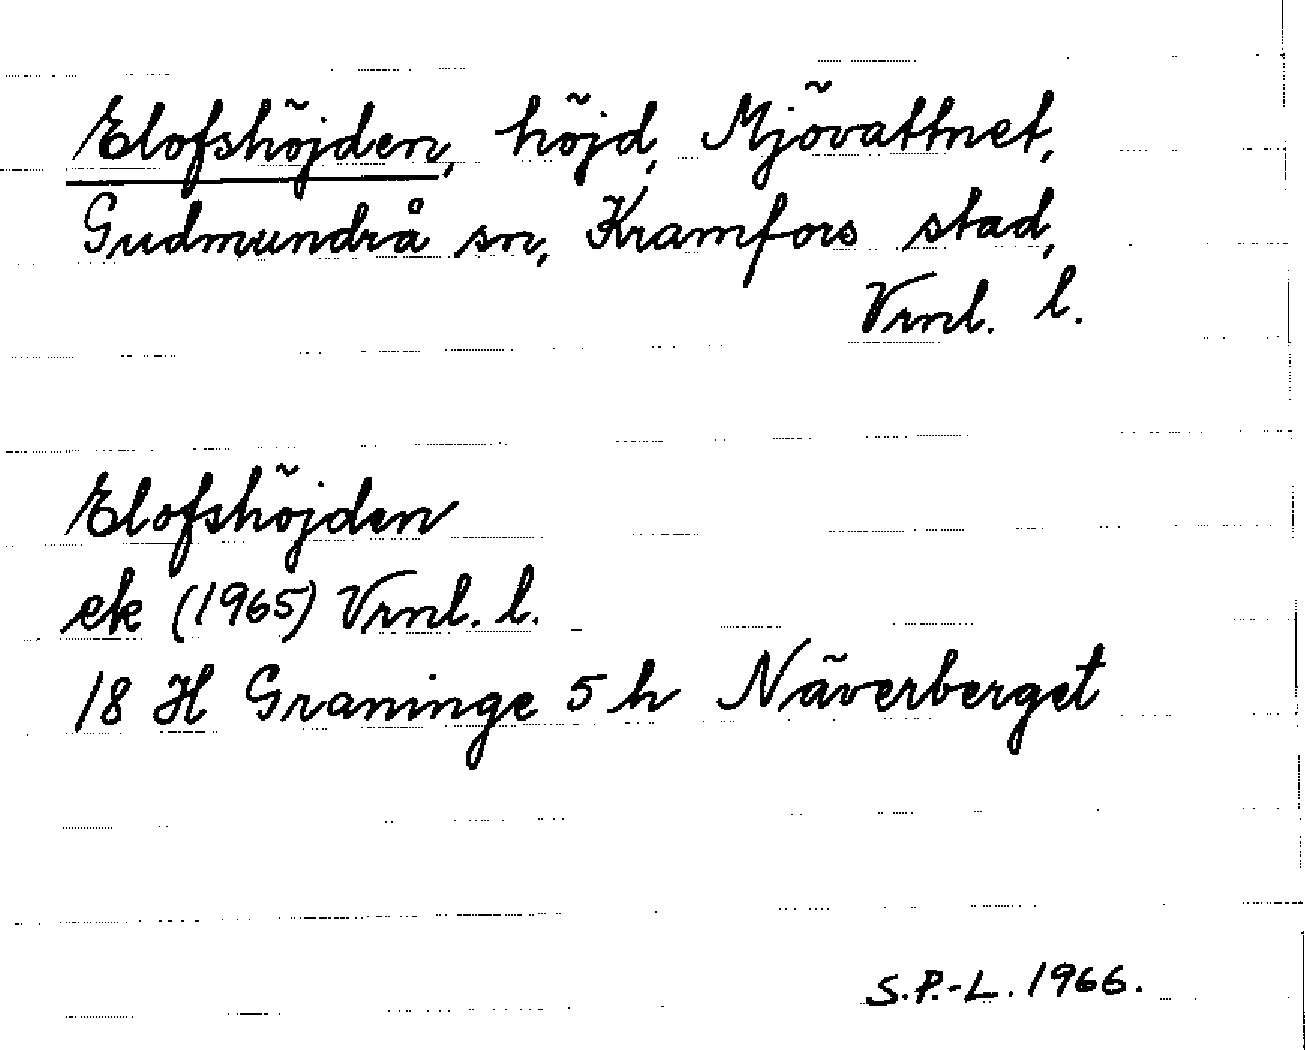 Elofshöjden, höjd, Mjövattnet,
Gudmundrå sn, Kramfors stad,
Vrnl. l.
Elofshöjden
ek (1965) Vrnl. l.
18 H Graninge 5 h Näverberget
S.P.-L. 1966.